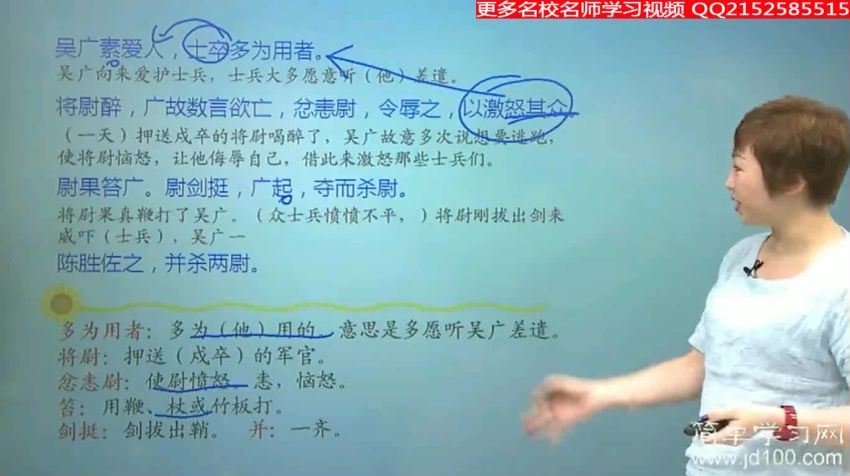 更多名校名师学习视频 QQ2152585515
吴广素爱人，士卒多为用者。
吴广向来爱护士兵，士兵大多愿意听（他）差遣。
将尉醉，广故数言欲亡，忿恚尉，令辱之，以激怒其众
（一天）押送戍卒的将尉喝醉了，吴广故意多次说想要逃跑，
使将尉恼怒，让他侮辱自己，借此来激怒那些士兵们。
尉果笞广。尉剑挺，广起，夺而杀尉。
将尉果真鞭打了吴广。（众士兵愤愤不平，）将尉刚拔出剑来
威吓（士兵），吴广一
陈胜佐之，并杀两尉。
多为用者：多为（他）用的。意思是多愿听吴广差遣。
将尉：押送（戍卒）的军官。
忿恚尉：使尉愤怒。恚，恼怒。
笞：用鞭、杖或竹板打。
剑挺：剑拔出鞘。 并：一齐。
简单学习网
www.jd100.com